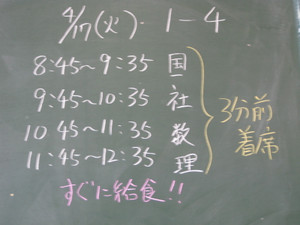 4/17(火)・1-4
8:45～9:35 国
9:45～10:35 社
10 45～11:35 数
11:45～12:35 理
3分前
着席
すぐに給食!!